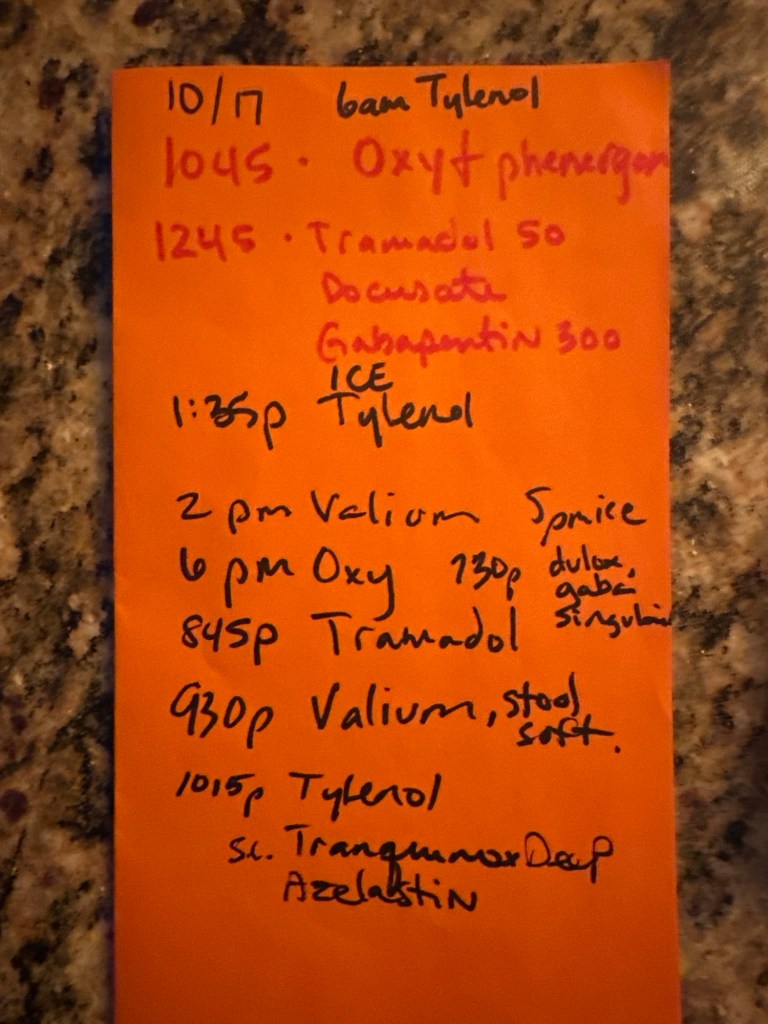 10/17 6am Tylenol
1045 · Oxy + phenergan
1245 · Tramadol 50
Docusate
Gabapentin 300
ICE
1:35p Tylenol
2 pm Valium 5pm ice
6 pm Oxy 730p dulox,
gaba
singulair
845p Tramadol
930p Valium, stool
soft.
1015p Tylenol
Deep
Azelastin